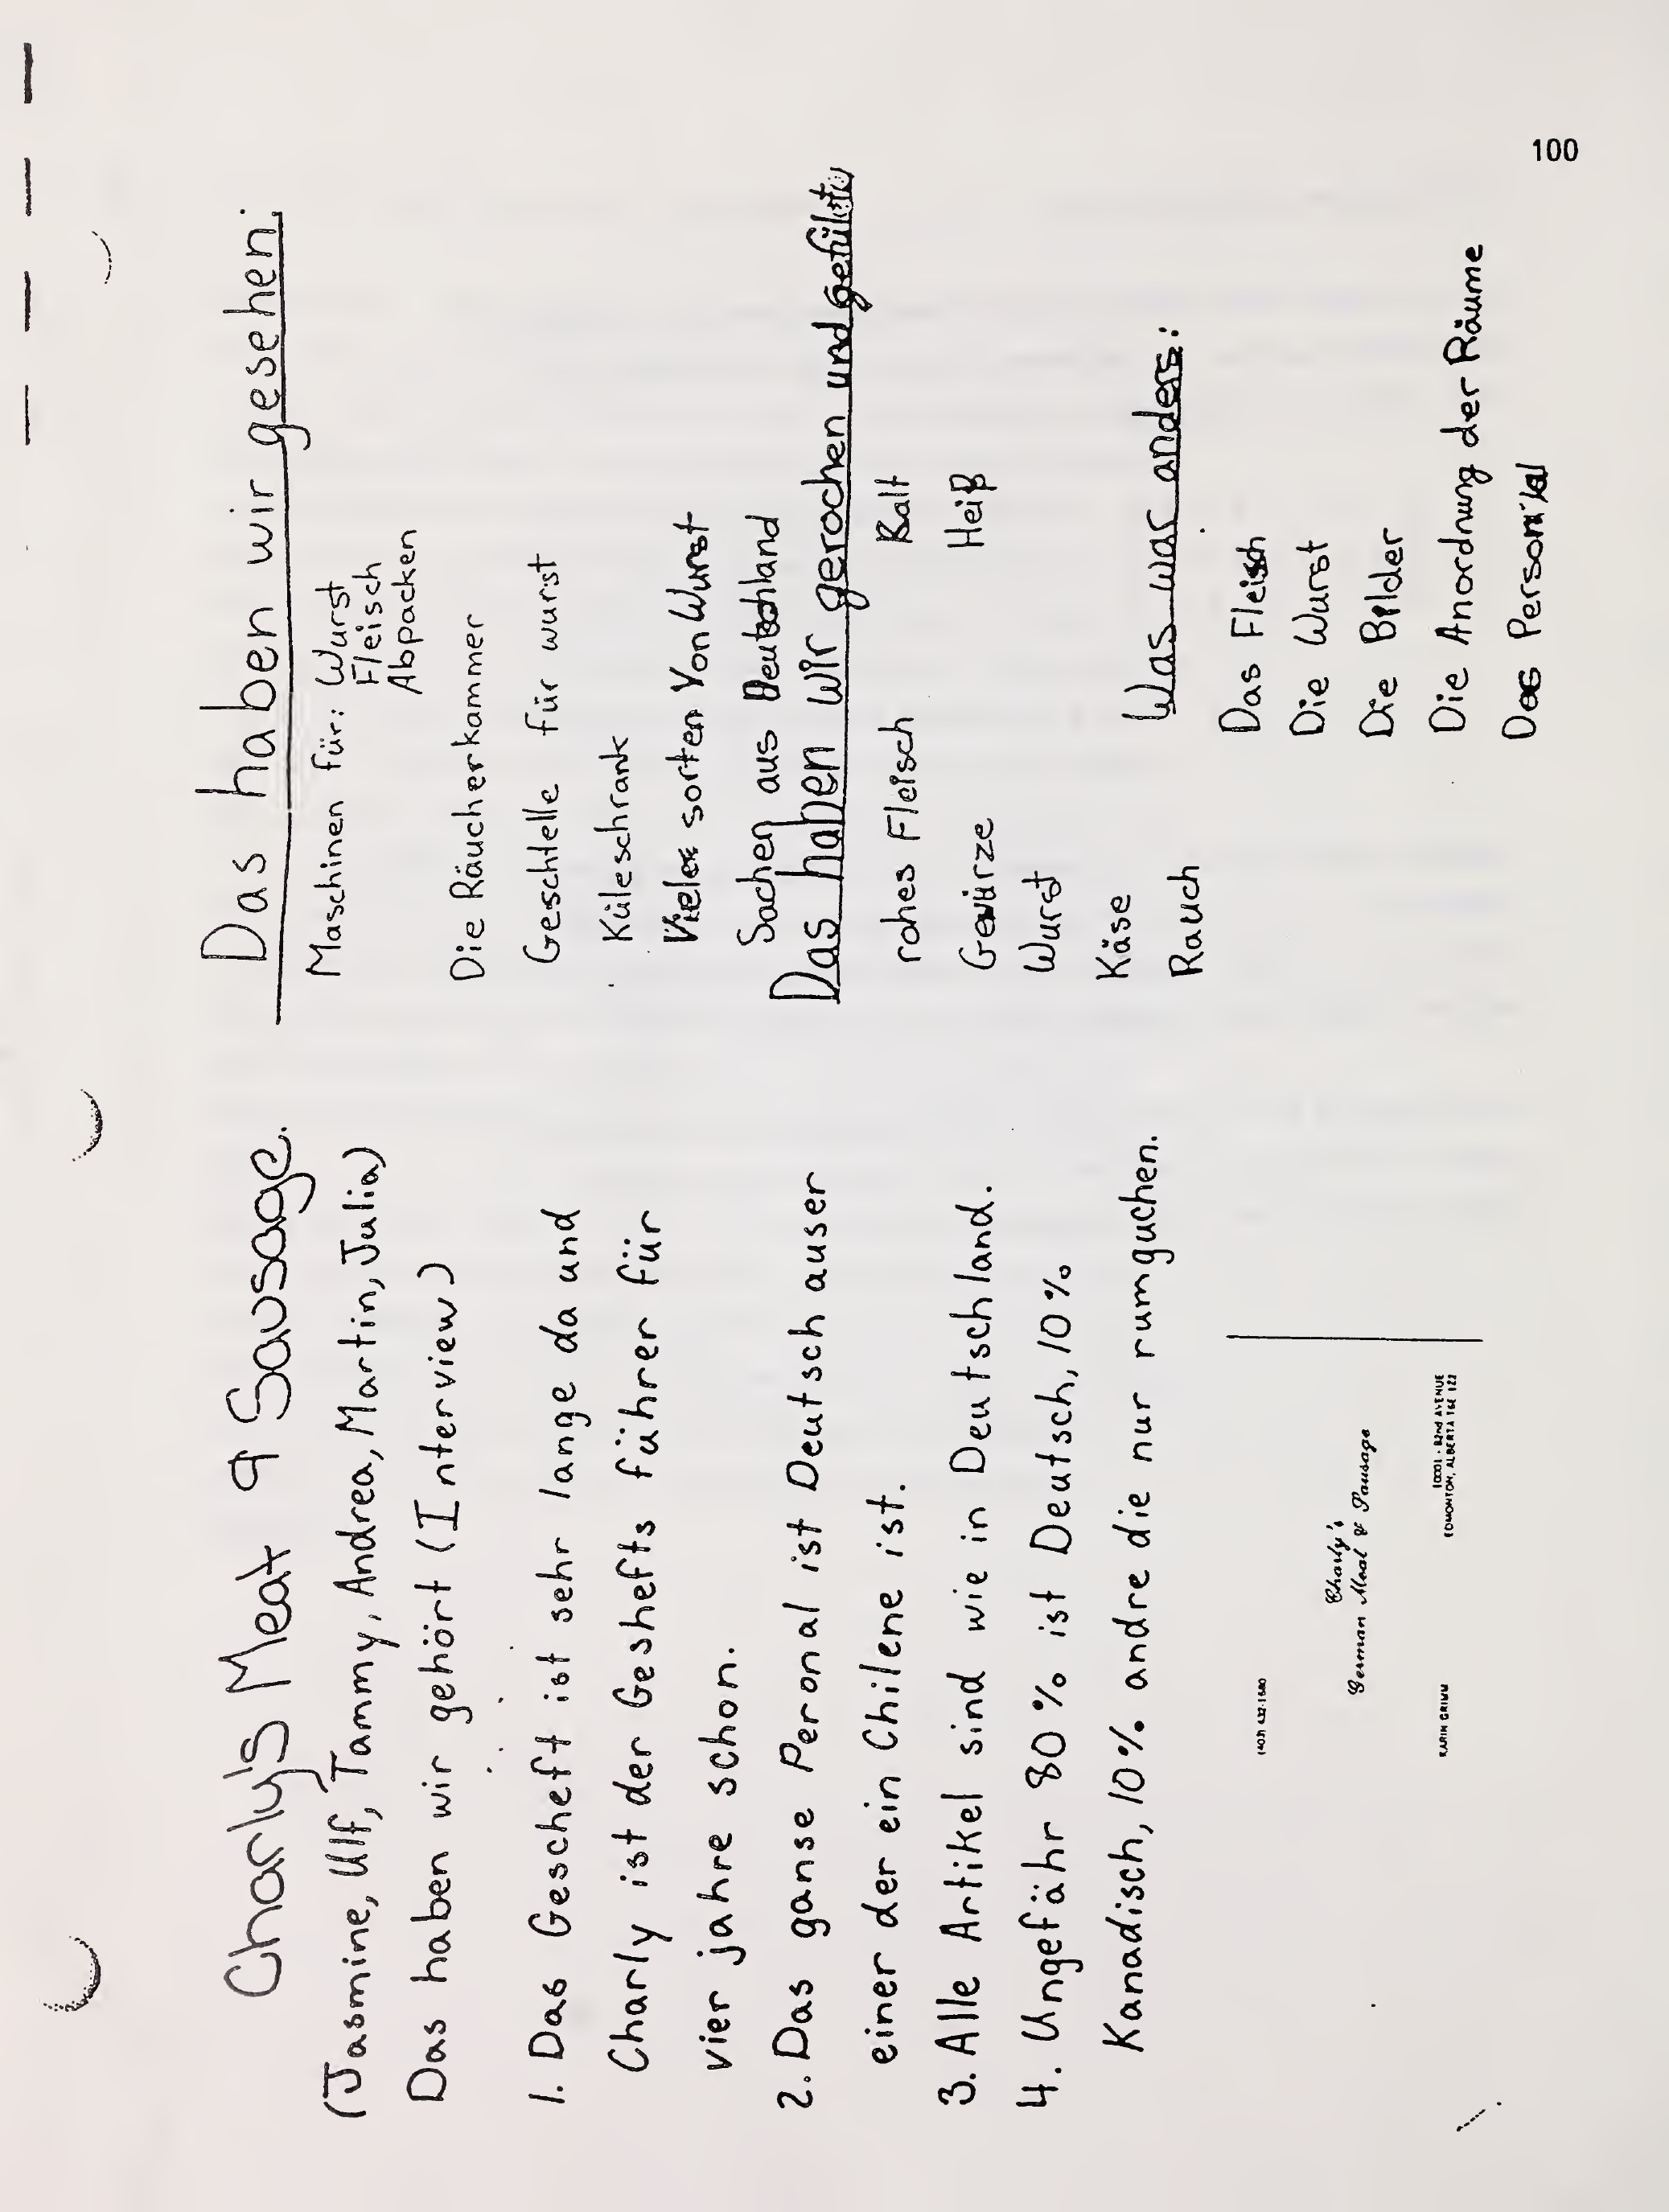 Charly's Meat & Sausage.
(Jasmine, Ulf, Tammy, Andrea, Martin, Julia)
Das haben wir gehört (Interview)
1. Das Gescheft ist sehr lange da und
Charly ist der Geshefts führer für
vier jahre schon.
2. Das ganse Peronal ist Deutsch auser
einer der ein Chilene ist.
3. Alle Artikel sind wie in Deutschland.
4. Ungefähr 80% ist Deutsch, 10%
Kanadisch, 10% andre die nur rumguchen.
(403) 432-1640
Charly's
German Meat & Sausage
KARIN GRIMM
10001 - 82nd AVENUE
EDMONTON, ALBERTA T6E 1Z2
Das haben wir gesehen:
Maschinen für: Wurst
Fleisch
Abpacken
Die Räucherkammer
Geschtelle für wurst
Küleschrank
Viele sorten Von Wurst
Sachen aus Deutschland
Das haben wir gerochen und gefült
rohes Fleisch Kalt
Gewürze Heiß
Wurst
Käse
Rauch
Was war anders:
Das Fleisch
Die Wurst
Die Bilder
Die Anordnung der Räume
Das Personal
100